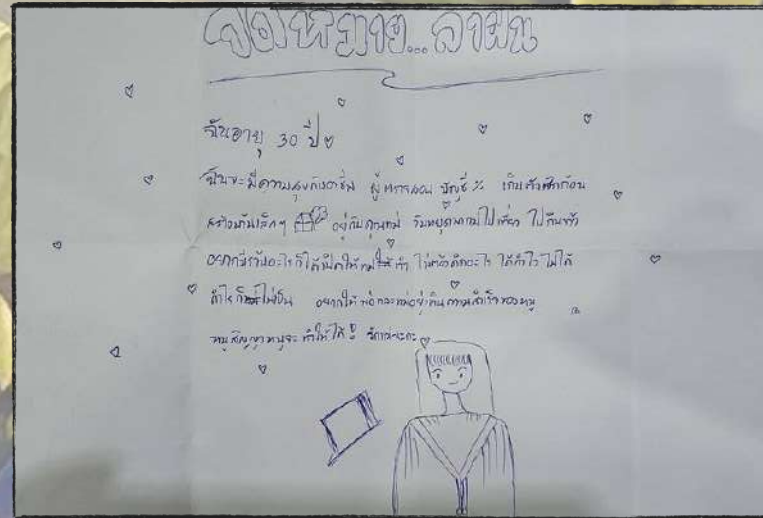 จดหมาย...ลาฝัน
ฉันอายุ 30 ปี
ฉันจะมีความสุขกับอาชีพ ผู้ตรวจสอบ บัญชี เก็บตังค์สักก้อน
สร้างบ้านเล็กๆ อยู่กับคุณแม่ วันหยุดพาแม่ไปเที่ยว ไปกินข้าว
อยากมีร้านอะไรก็ได้เปิดให้แม่ได้ทำ ไม่หวังอะไร ได้กำไร ไม่ได้
กำไรก็ไม่เป็น อยากให้พ่อและแม่อยู่กินความสำเร็จของหนู
หนูสัญญาหนูจะทำให้ได้ รักแม่นะคะ